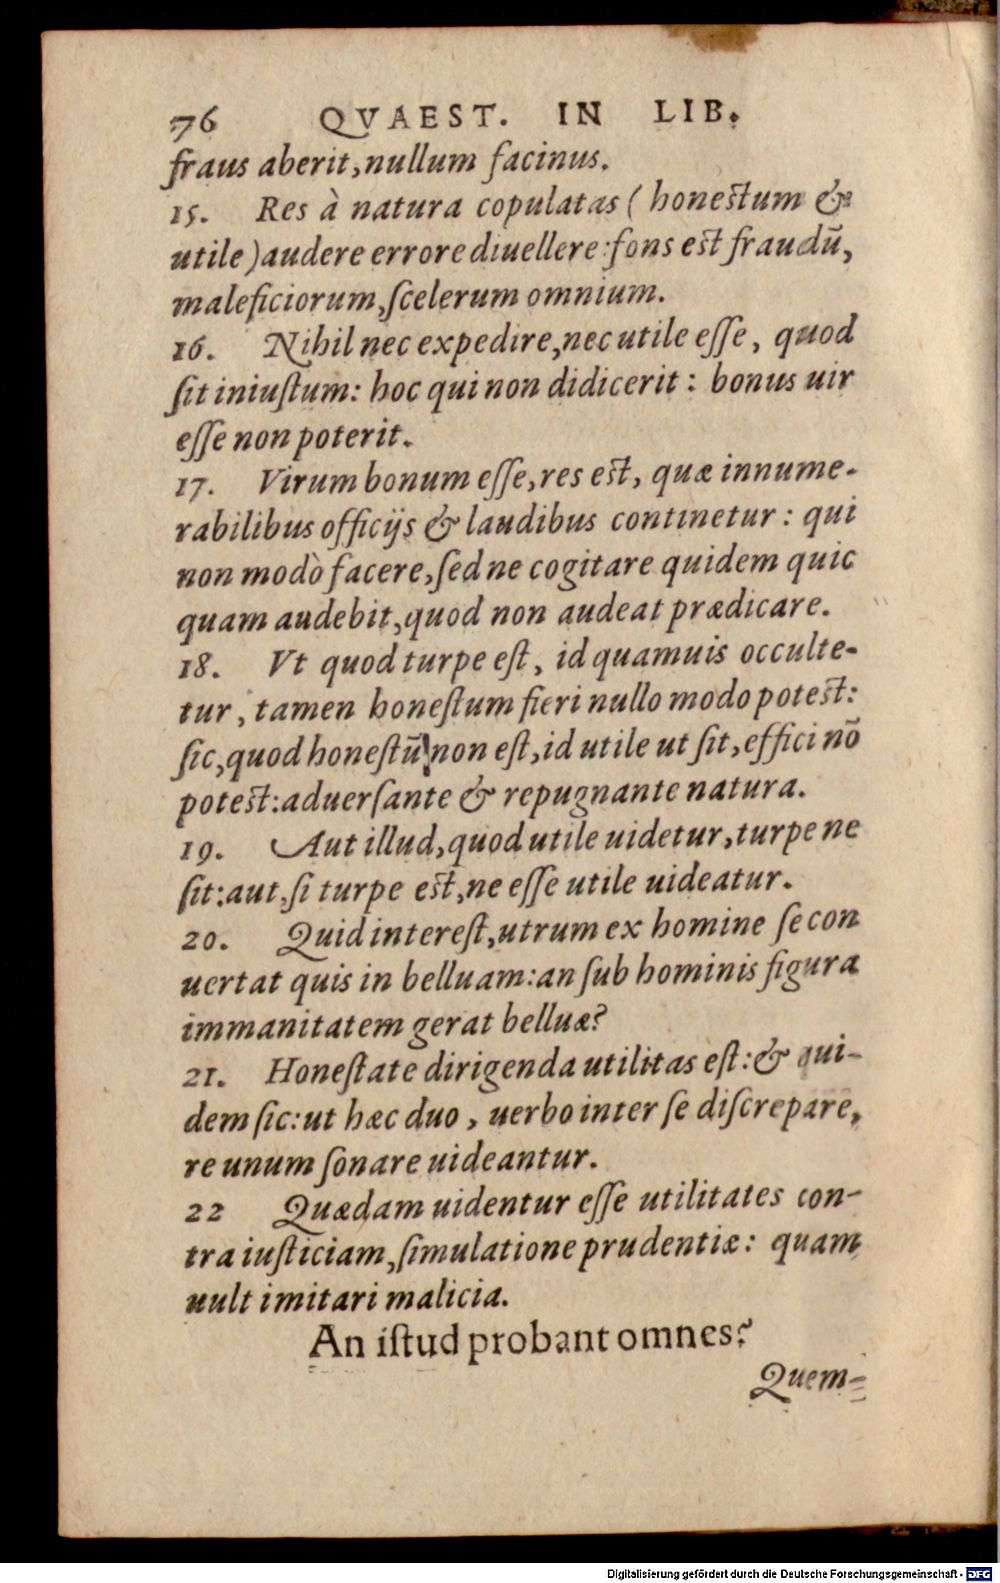 76 QVAEST. IN LIB.
fraus aberit, nullum facinus.
15. Res à natura copulatas ( honestum &
utile ) audere errore diuellere: fons est fraudū,
maleficiorum, ſcelerum omnium.
16. Nihil nec expedire, nec utile eſſe, quod
ſit iniuſtum: hoc qui non didicerit: bonus uir
eſſe non poterit.
17. Virum bonum eſſe, res est, quæ innume-
rabilibus officijs & laudibus continetur: qui
non modò facere, ſed ne cogitare quidem quic
quam audebit, quod non audeat prædicare.
18. Vt quod turpe eſt, id quamuis occulte-
tur, tamen honeſtum fieri nullo modo potest:
ſic, quod honeſtū non eſt, id utile ut ſit, effici nō
potest: aduerſante & repugnante natura.
19. Aut illud, quod utile uidetur, turpe ne
ſit: aut, ſi turpe est, ne eſſe utile uideatur.
20. Quid intereſt, utrum ex homine ſe con
uertat quis in belluam: an ſub hominis figura
immanitatem gerat belluæ?
21. Honeſtate dirigenda utilitas eſt: & qui-
dem ſic: ut hæc duo, uerbo inter ſe diſcrepare,
re unum ſonare uideantur.
22 Quædam uidentur eſſe utilitates con-
tra iuſticiam, ſimulatione prudentiæ: quam
uult imitari malicia.
An iſtud probant omnes?
Quem-
Digitalisierung gefördert durch die Deutsche Forschungsgemeinschaft - DFG